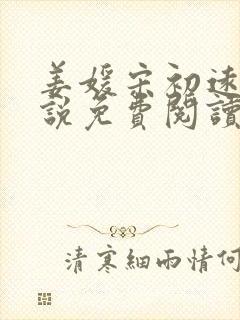 姜媛宋初遠
說免費閱讀
清寒細雨情何